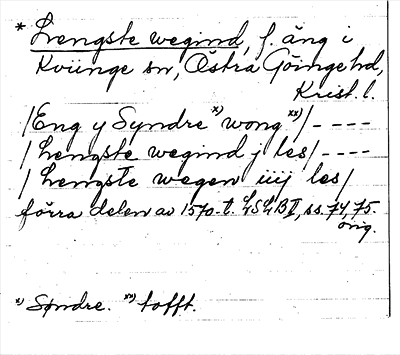 * Lengste wegind, f. äng i
Kviinge sn, Östra Göinge hd,
Krist. l.
/Eng y Syndre x) wong xx)/ ----
/ Lengste wegind j les/ ----
/ Lengste wegen iiij les/
förra delen av 1570-t. LSLB II, ss. 74, 75.
orig.
x) Søndre. xx) tofft.